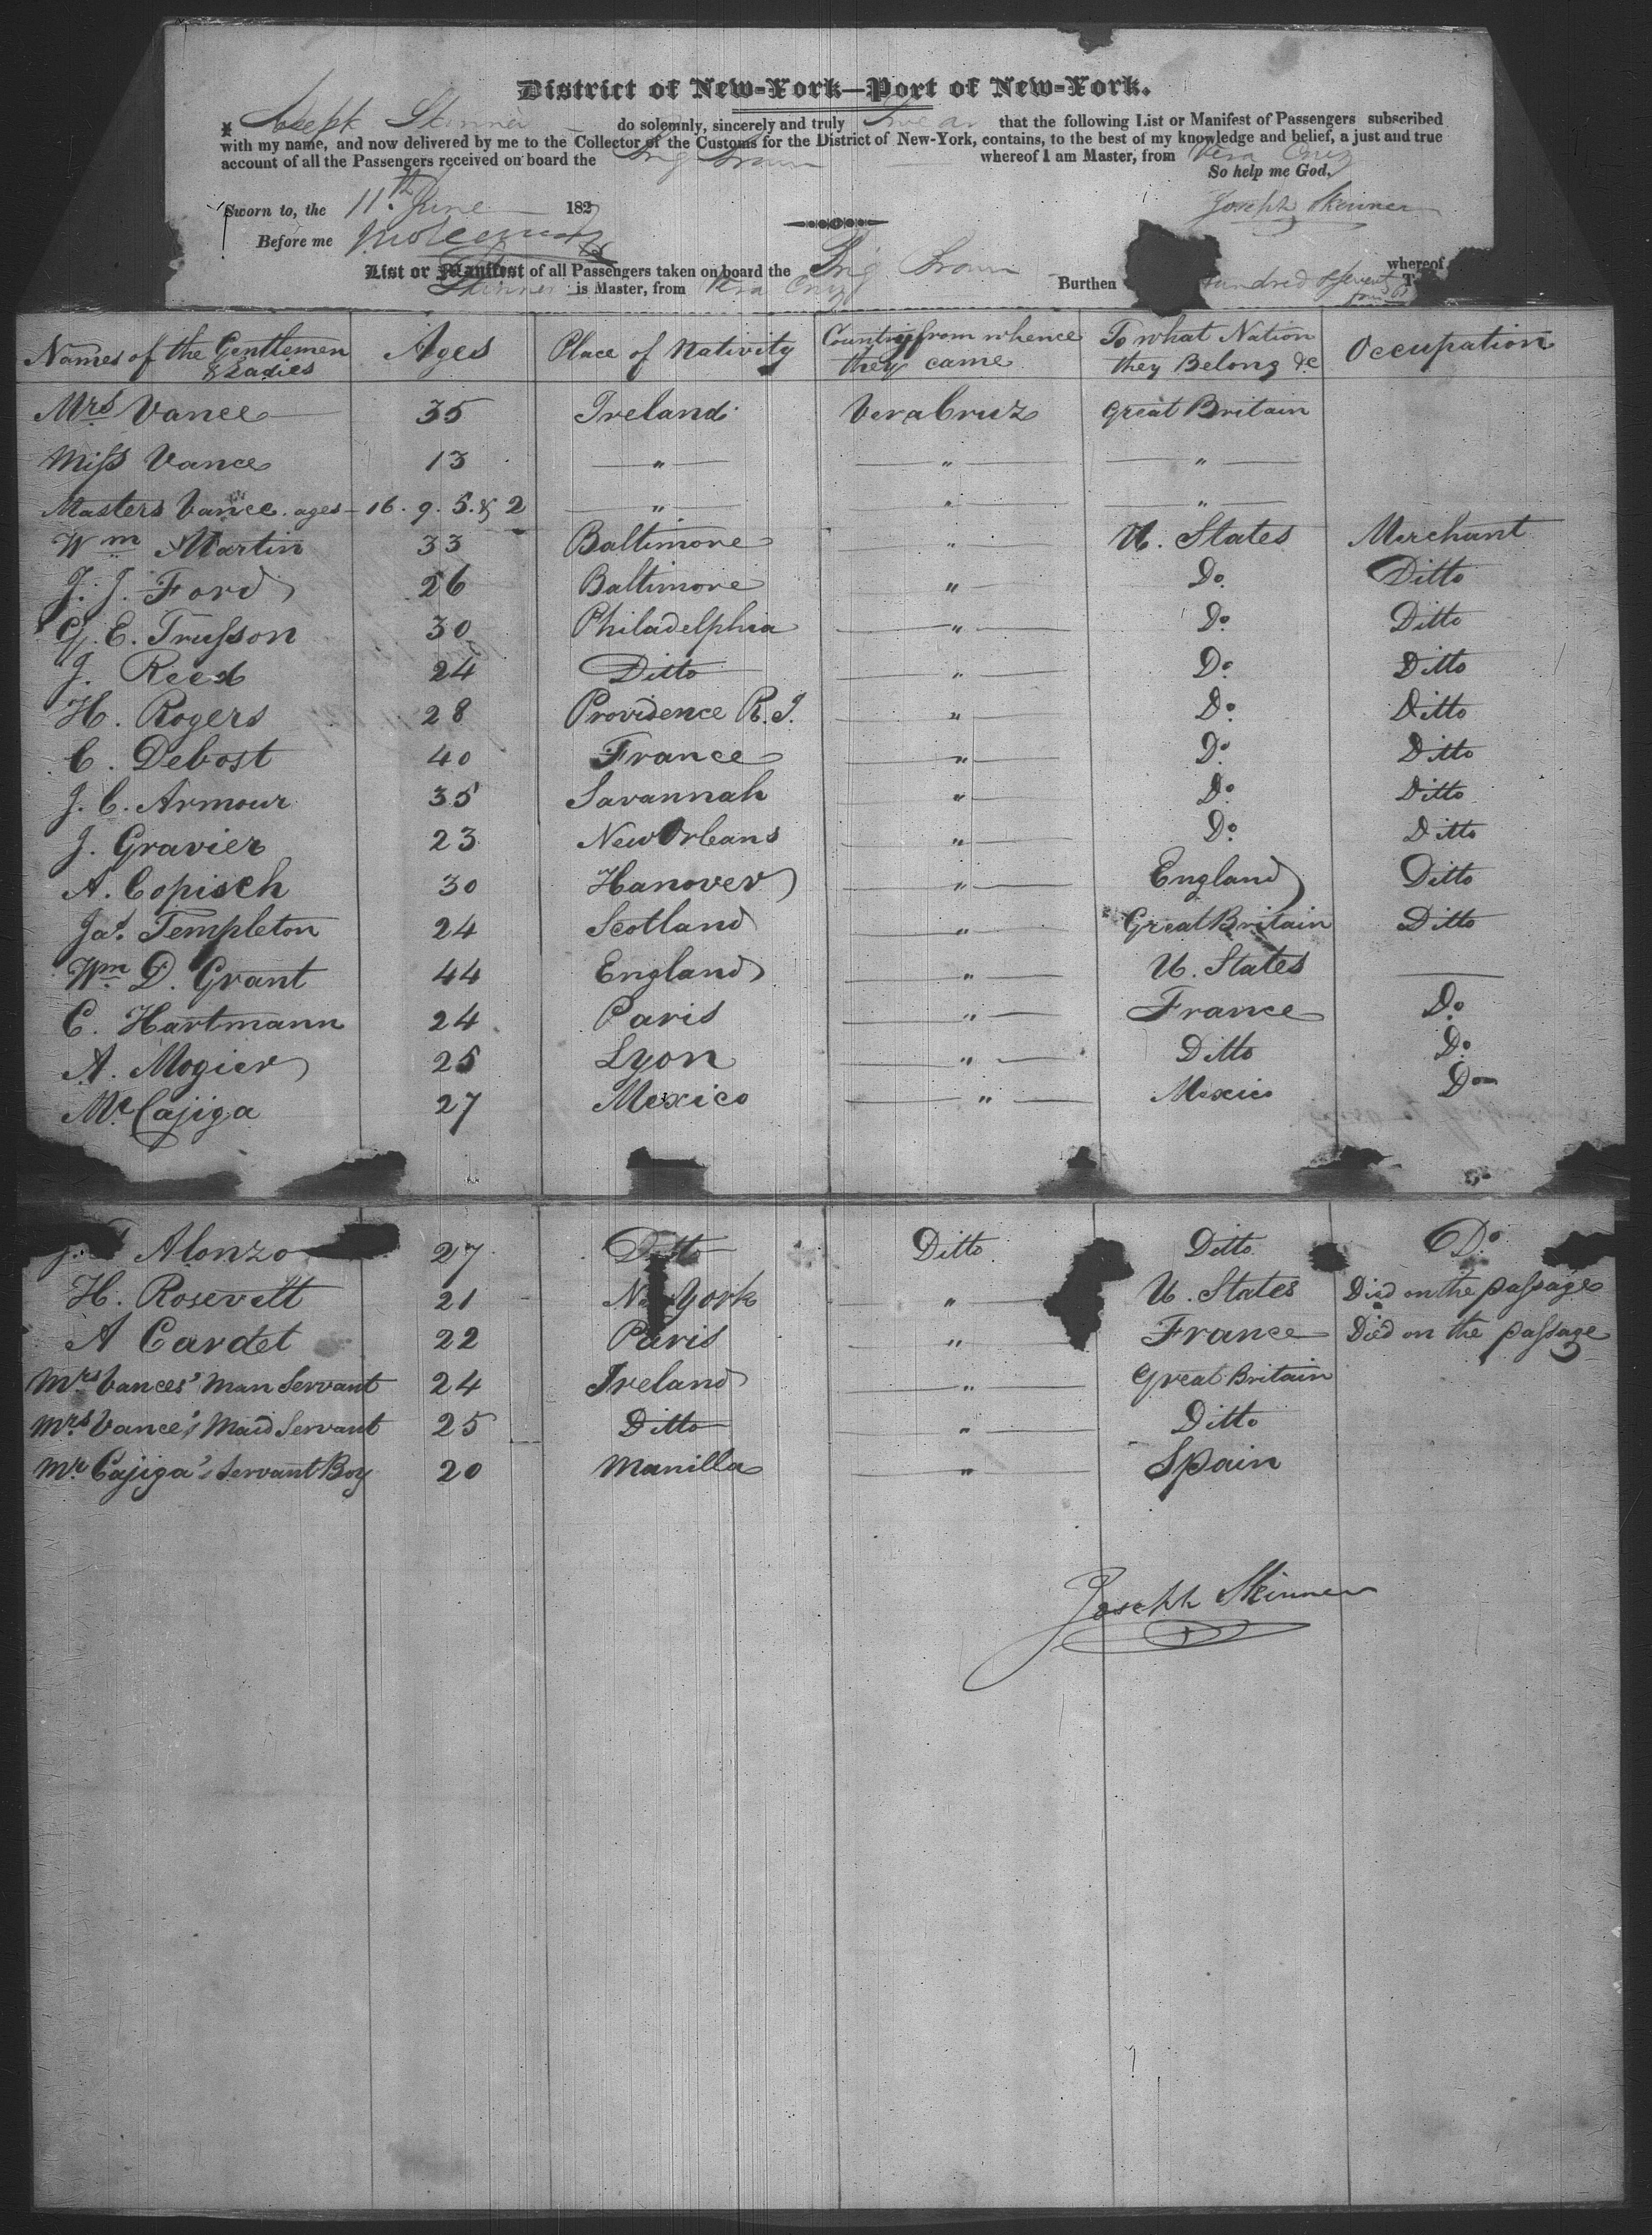 District of New-York—Port of New-York.
I Joseph Skinner do solemnly, sincerely and truly Swear that the following List or Manifest of Passengers subscribed
with my name, and now delivered by me to the Collector of the Customs for the District of New-York, contains, to the best of my knowledge and belief, a just and true
account of all the Passengers received on board the Brig Brown whereof I am Master, from Vera Cruz
So help me God.
Sworn to, the 11th June 182 Joseph Skinner
Before me
List or Manifest of all Passengers taken on board the Brig Brown whereof
Skinner is Master, from Vera Cruz Burthen hundred & seventy
Names of the Gentlemen & Ladies Ages Place of Nativity Country from whence they came To what Nation they Belong &c Occupation
Mrs Vance 35 Ireland Vera Cruz Great Britain
Miss Vance 13 " " "
Masters Vance. ages 16. 9. 5. & 2 " " "
Wm Martin 33 Baltimore " U. States Merchant
J. J. Ford 26 Baltimore " Do. Ditto
G. E. Trusson 30 Philadelphia " Do Ditto
J. Reed 24 Ditto " Do Ditto
H. Rogers 28 Providence R. I. " Do Ditto
C. Debost 40 France " Do Ditto
J. C. Armour 35 Savannah " Do Ditto
J. Gravier 23 New Orleans " Do Ditto
A. Copisch 30 Hanover " England Ditto
Jas. Templeton 24 Scotland " Great Britain Ditto
Wm D. Grant 44 England " U. States
C. Hartmann 24 Paris " France Do
A. Mogier 25 Lyon " Ditto Do
Mr Cajiga 27 Mexico " Mexico Do
J. Alonzo 27 Ditto Ditto Ditto Do
H. Rosevelt 21 New York " U. States Died on the passage
A Cardet 22 Paris " France Died on the passage
Mrs Vances' Man Servant 24 Ireland " Great Britain
Mrs Vance's Maid Servant 25 Ditto " Ditto
Mr Cajiga's Servant Boy 20 Manilla " Spain
Joseph Skinner